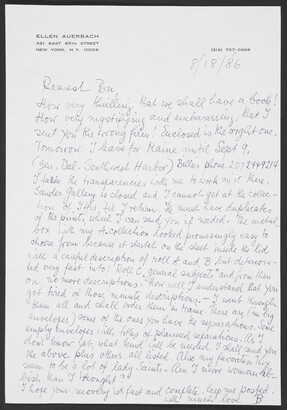 ELLEN AUERBACH
NEW YORK, N.Y. 10028
8/18/86
Dearest
How very thrilling that we shall have a book!
How very mystifying and embarrassing, that I
sent you the wrong film! Enclosed is the right one.
Tomorrow I leave for Maine until Sept 9.
(Gen. Del. Southwest Harbor) phone 207 244 9214
I take the transparencies with me to work on it there.
Sander Gallery is closed and I cannot get at the collec-
tion of til I return. You must have duplicates
of the prints while I can send you if needed. The metal
box with my A-collection looked promisingly easy to
choose from because it started on the sheet inside the lid
with a careful description of roll A and B but deteriora-
ted very fast into: Roll C, general subjects and from then
on no more descriptions. How well I understand that you
got tired of those minute descriptions. – I went through
them all and shall order them in frame. There are (in big
envelopes) some of the ones you have the separations. Some
empty envelopes with titles of planned separations. As I
don't know yet, what kind will be needed I shall send you
the above plus others, all listed. Also my favorites. There
seem to be a lot of lady-Saints. Am I more
than I thought?
I hope your recovery is fast and complete, keep me posted.
With much love